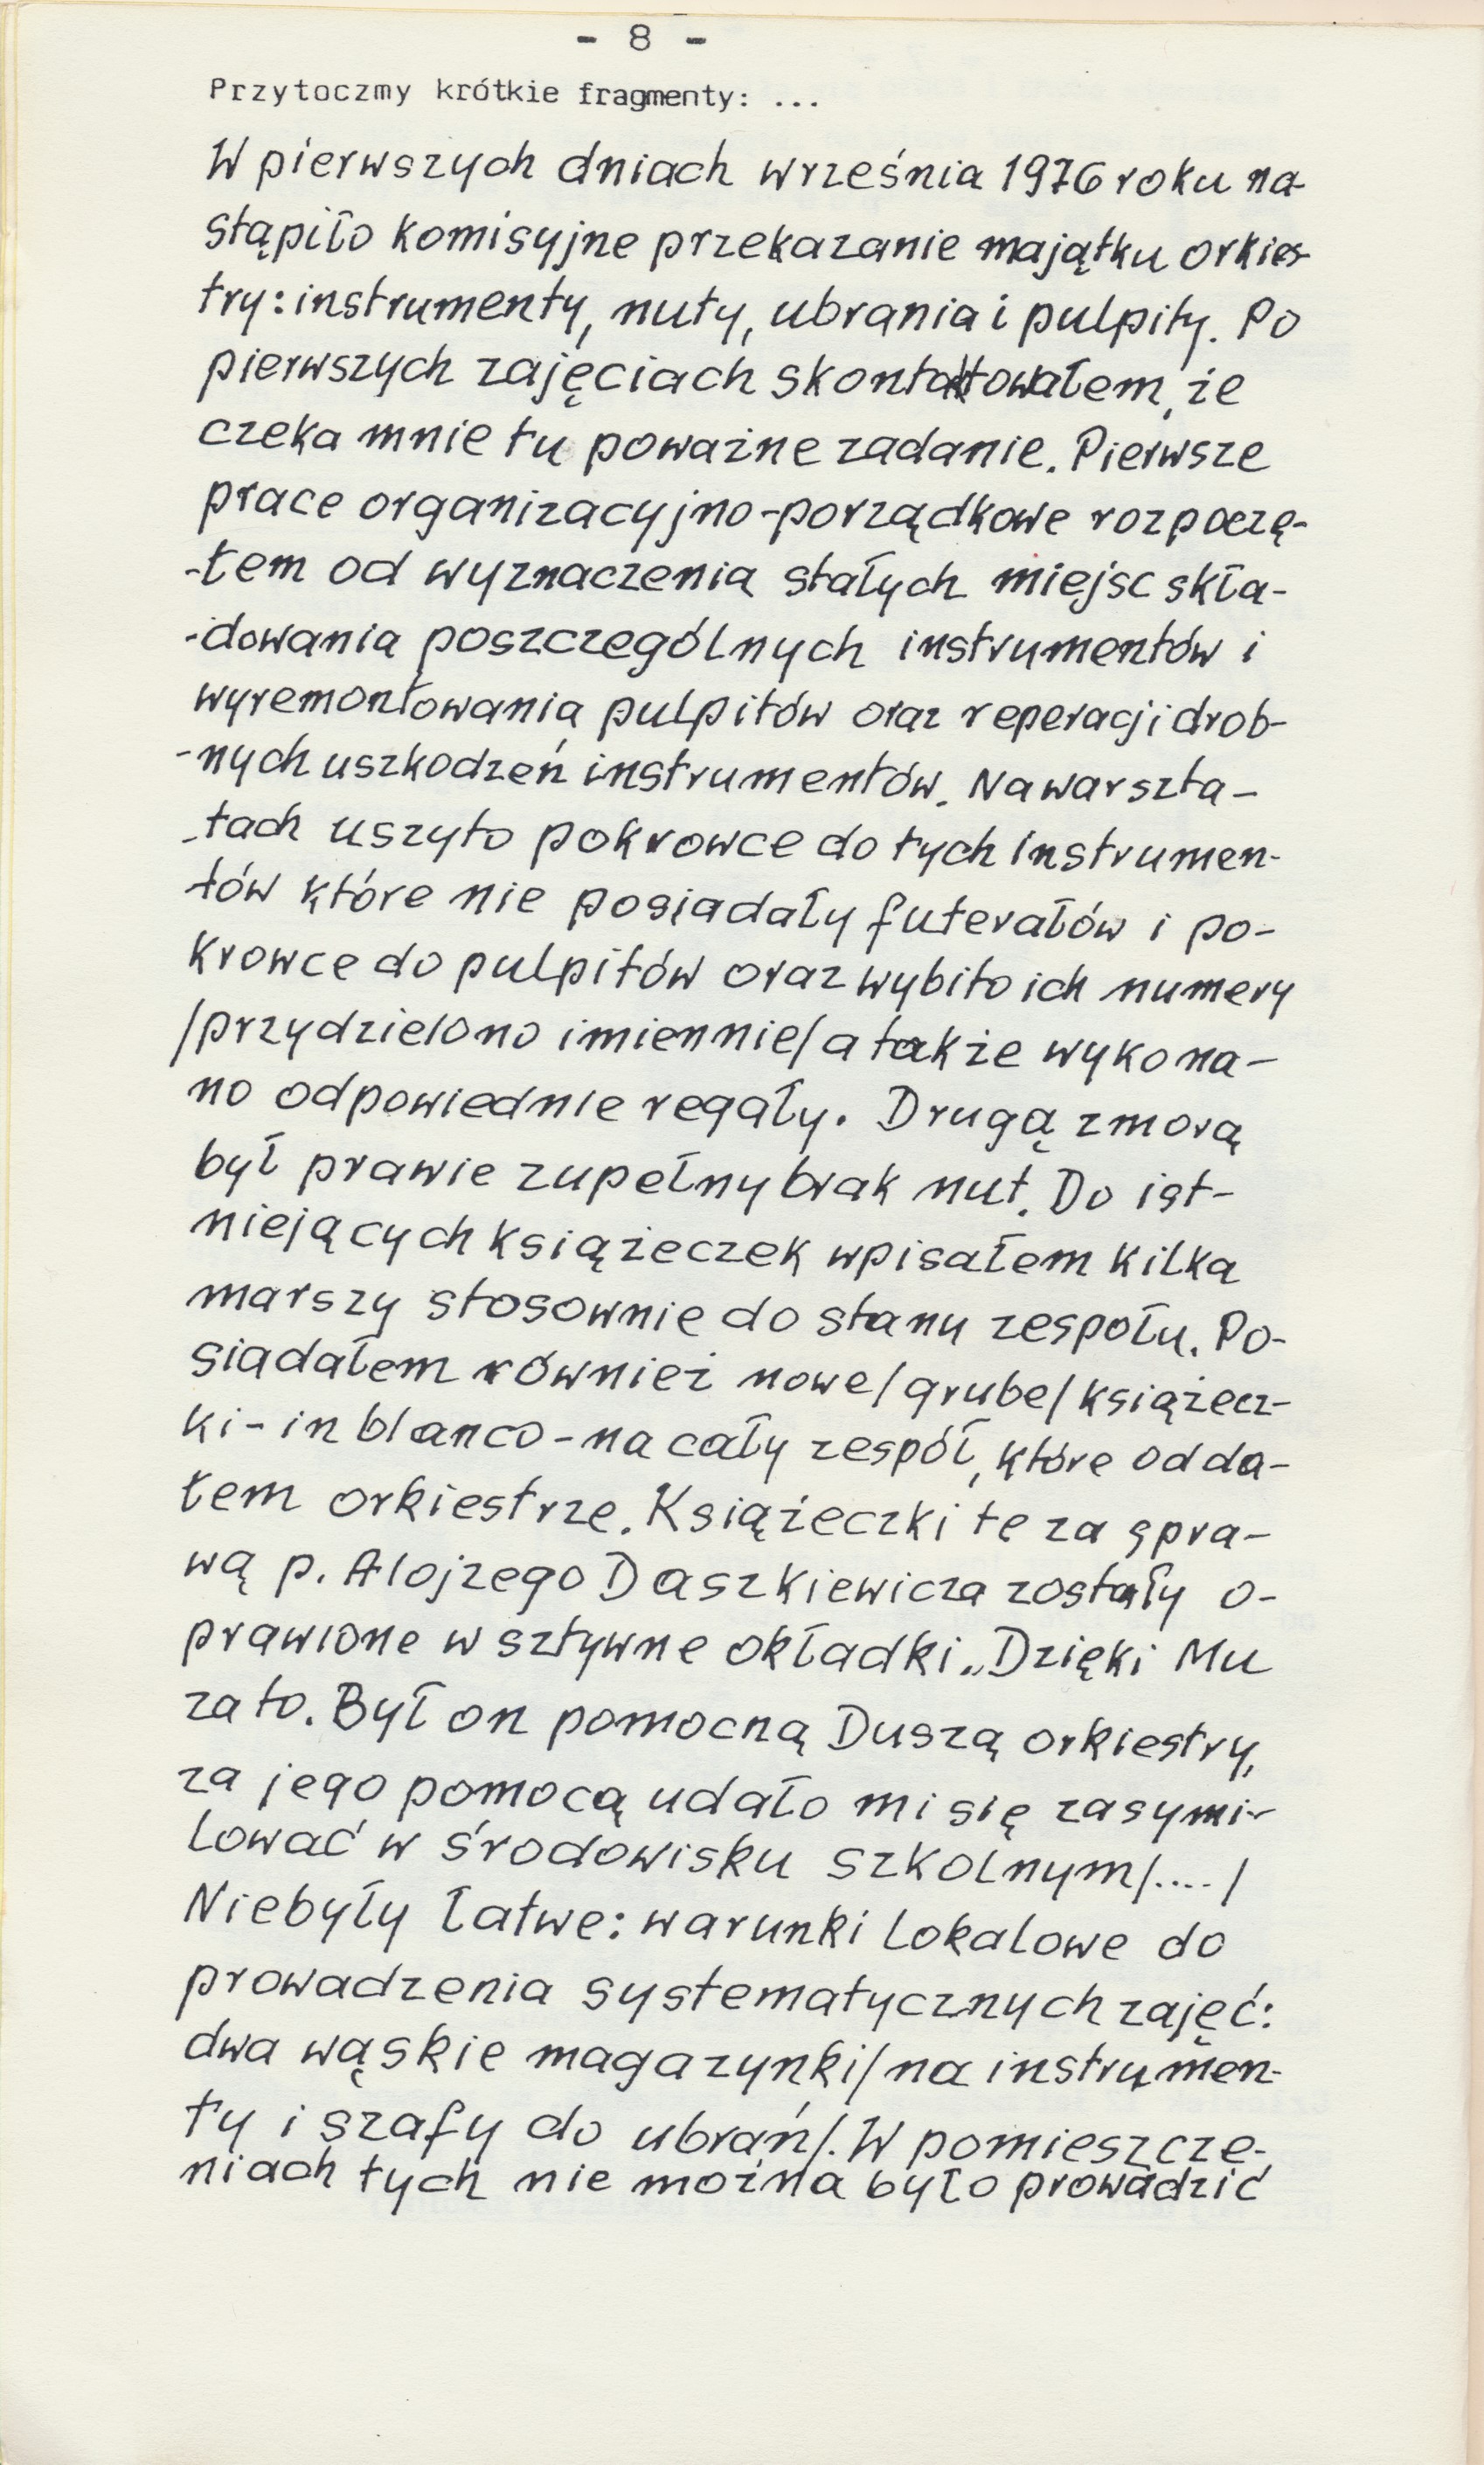 - 8 -
Przytoczmy krótkie fragmenty: ...
W pierwszych dniach września 1976 roku na-
stąpiło komisyjne przekazanie majątku orkies-
try: instrumenty, nuty, ubrania i pulpity. Po
pierwszych zajęciach skontaktowałem, że
czeka mnie tu poważne zadanie. Pierwsze
prace organizacyjno-porządkowe rozpoczę-
-łem od wyznaczenia stałych miejsc skła-
-dowania poszczególnych instrumentów i
wyremontowania pulpitów oraz reperacji drob-
-nych uszkodzeń instrumentów. Na warszta-
-tach uszyto pokrowce do tych instrumen-
tów które nie posiadały futerałów i po-
krowce do pulpitów oraz wybito ich numery
/przydzielono imiennie/ a także wykona-
no odpowiednie regały. Drugą zmorą
był prawie zupełny brak nut. Do ist-
niejących książeczek wpisałem kilka
marszy stosownie do stanu zespołu. Po-
siadałem również nowe /grube/ książecz-
ki - in blanco - na cały zespół, które odda-
łem orkiestrze. Książeczki te za spra-
wą p. Alojzego Daszkiewicza zostały o-
prawione w sztywne okładki. „Dzięki Mu
za to. Był on pomocną Duszą orkiestry,
za jego pomocą udało mi się zasymi-
lować w środowisku szkolnym /..../
Niebyły łatwe: warunki lokalowe do
prowadzenia systematycznych zajęć:
dwa wąskie magazynki /na instrumen-
ty i szafy do ubrań/. W pomieszcze-
niach tych nie można było prowadzić